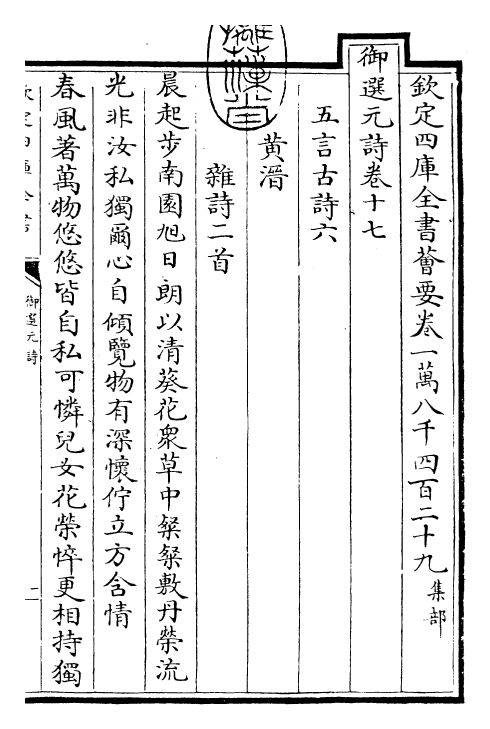 欽定四庫全書薈要卷一萬八千四百二十九 集部
御選元詩卷十七
五言古詩六
黄溍
雜詩二首
晨起步南園旭日朗以清葵花衆草中粲粲敷丹榮流
光非汝私獨爾心自傾覽物有深懷佇立方含情
春風著萬物悠悠皆自私可憐兒女花榮悴更相持獨
御選元詩